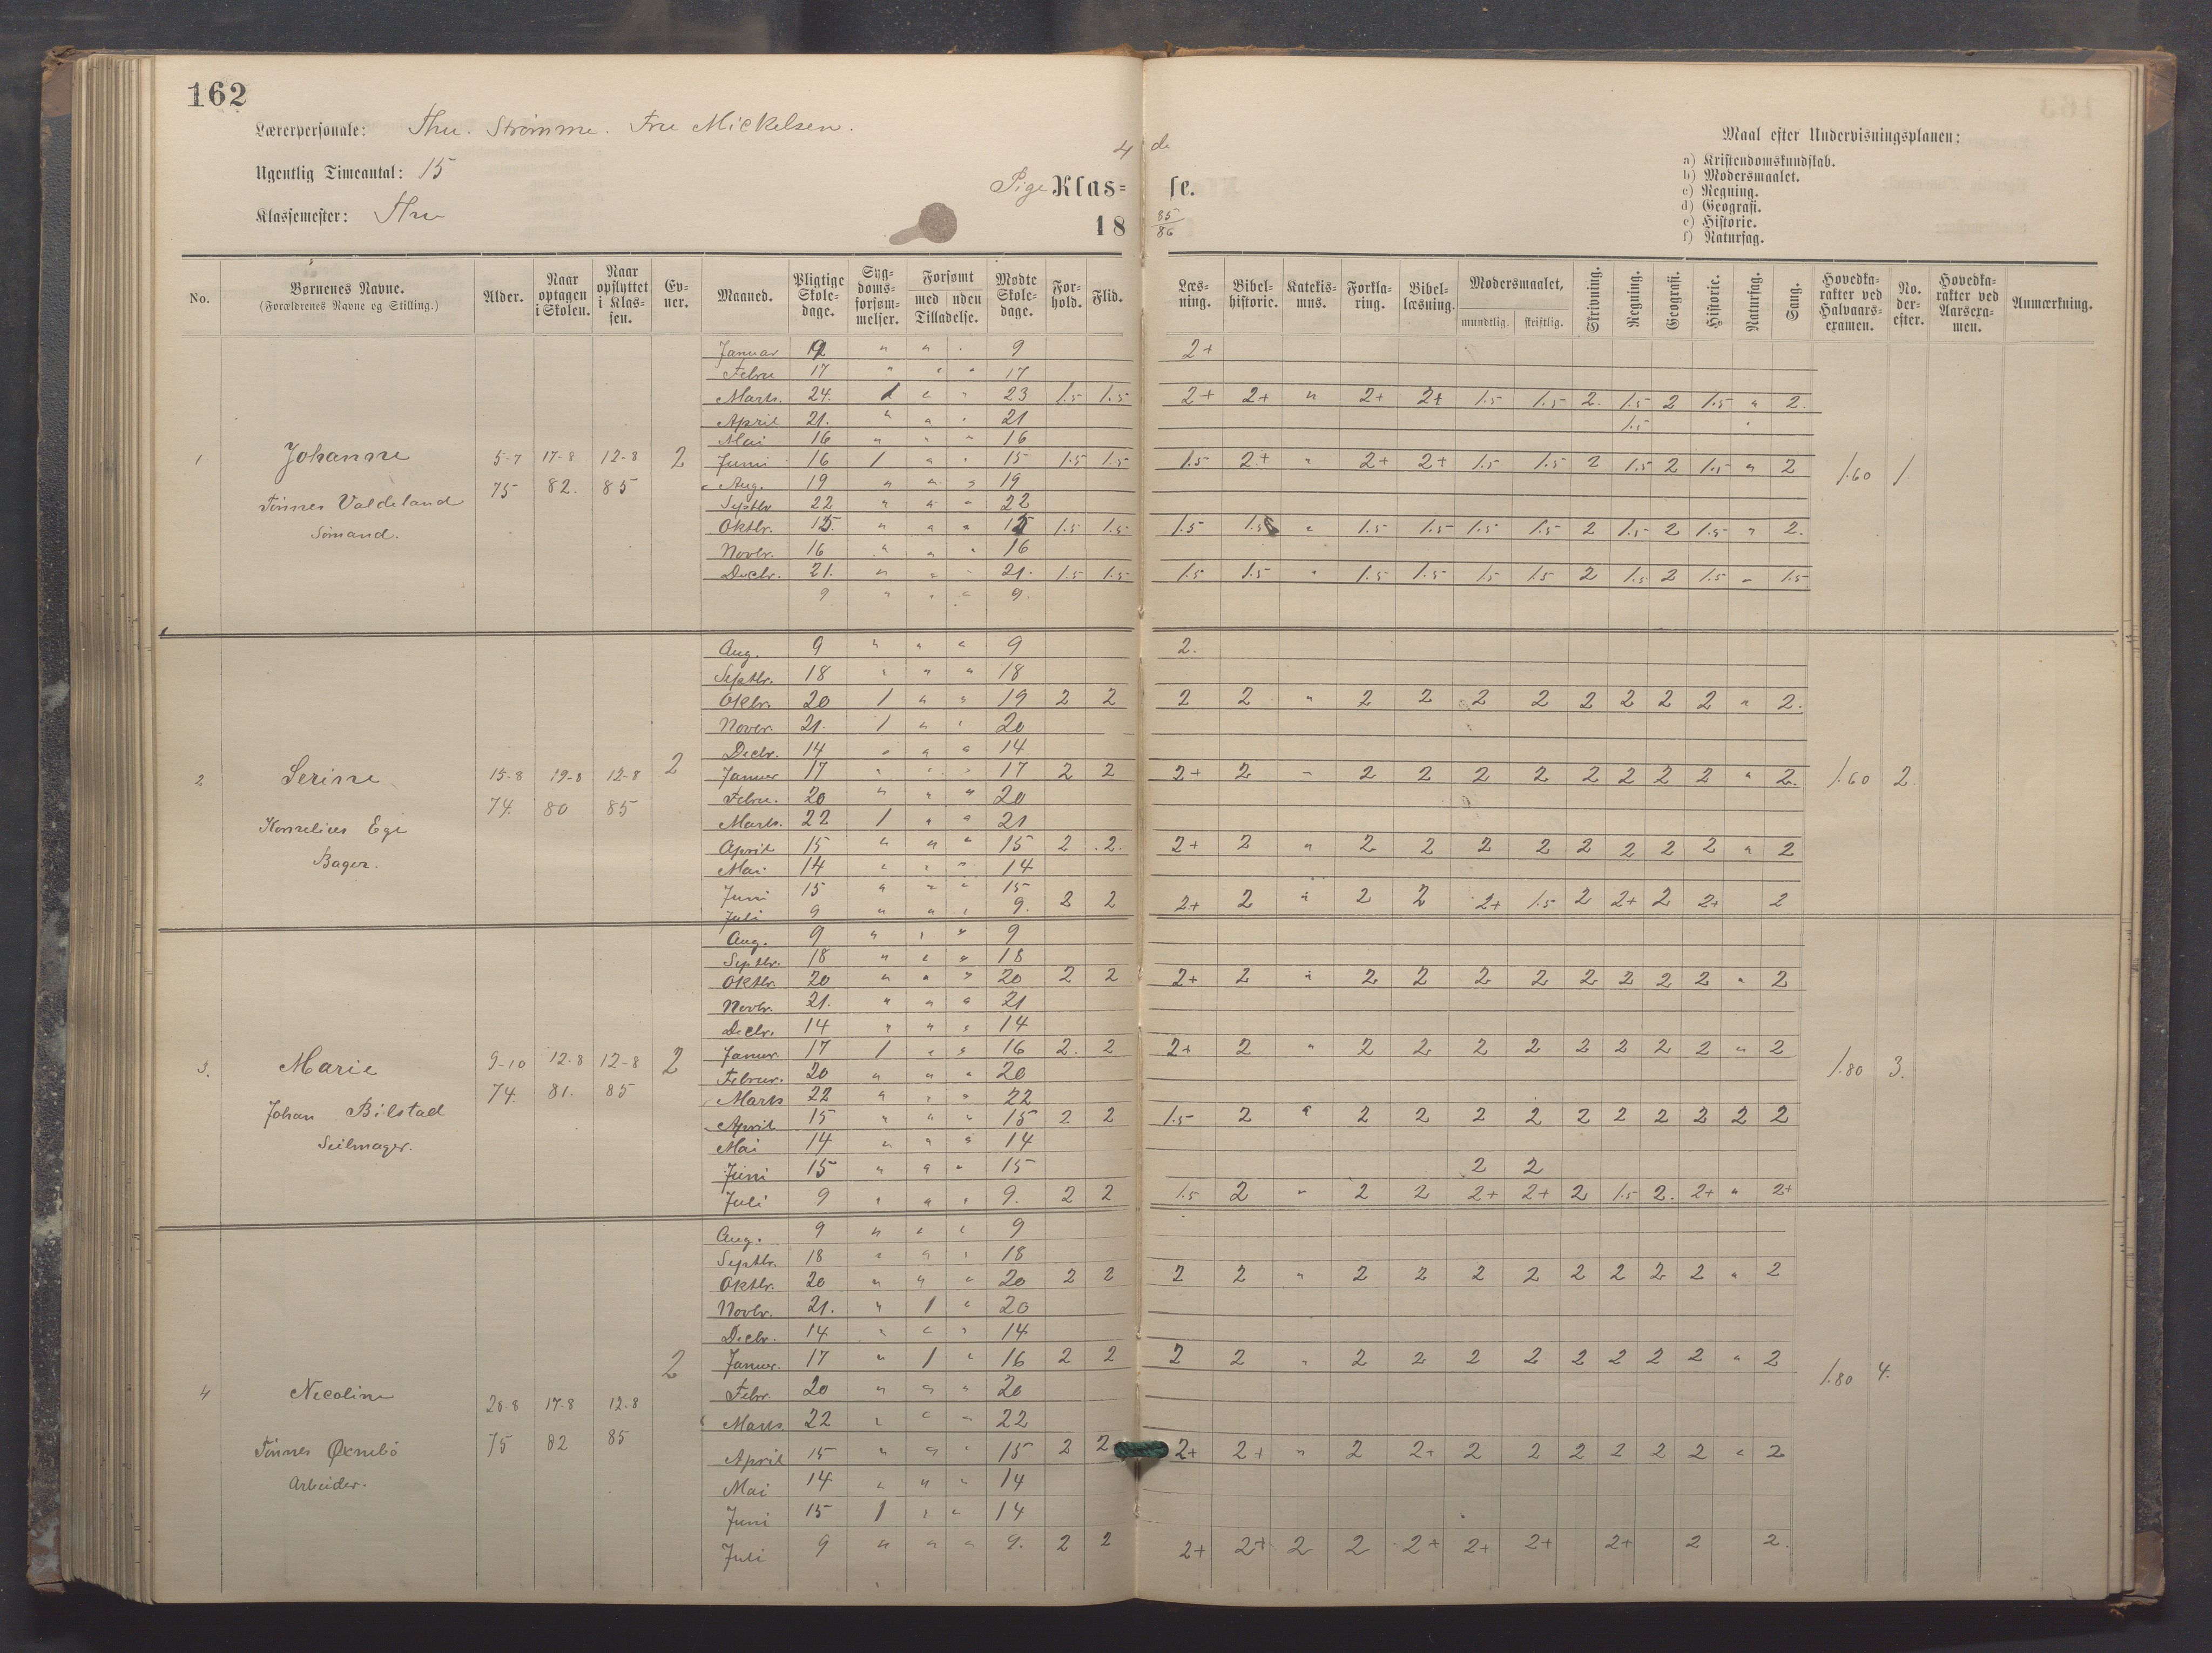 162
Lærerpersonale: Thu. Strømme. Fru Mickelsen.
Ugentlig Timeantal: 15
Klassemester: Thu
4 de
Pige Klas= se.
18 85/86
Maal efter Undervisningsplanen:
a) Kristendomskundskab.
b) Modersmaalet.
c) Regning.
d) Geografi.
e) Historie.
f) Naturfag.
No. | Børnenes Navne. (Forældrenes Navne og Stilling.) | Alder. | Naar optagen i Skolen. | Naar opflyttet i Klassen. | Evner. | Maaned. | Pligtige Skoledage. | Sygdomsforsømmelser. | Forsømt med uden Tilladelse. | Mødte Skoledage. | Forhold. | Flid. | Læsning. | Bibelhistorie. | Katekismus. | Forklaring. | Bibellæsning. | Modersmaalet, mundtlig. skriftlig. | Skrivning. | Regning. | Geografi. | Historie. | Naturfag. | Sang. | Hovedkarakter ved Halvaarsexamen. | No. derefter. | Hovedkarakter ved Aarsexamen. | Anmærkning.
1 Johanne 5-7 75 17-8 82. 12-8 85 2 1.60 1
Tønnes Valdeland
Sømand.
Januar 9 " " " 9 2+
Febru 17 " " " 17
Marts. 24. 1 " " 23 1.5 1.5 2+ 2+ " 2+ 2+ 1.5 1.5 2. 1.5 2 1.5 " 2.
April 21. " " " 21 1.5
Mai 16 " " " 16
Juni 16 1 " " 15 1.5 1.5 1.5 2+ " 2+ 2+ 1.5 1.5 2 1.5 2 1.5 " 2
Aug. 19 " " " 19
Septbr 22 " " " 22
Oktbr. 15. " " " 15 1.5 1.5 1.5 1.5 " 1.5 1.5 1.5 1.5 2 1.5 2 1.5 " 2.
Novbr. 16 " " " 16
Decbr. 21. " " " 21. 1.5 1.5 1.5 1.5 " 1.5 1.5 1.5 1.5 2 1.5 2 1.5 " 1.5
9 " " " 9.
2 Serine 15-8 74. 19-8 80 12-8 85 2 1.60 2.
Kornelius Ege
Bager.
Aug. 9 " " " 9 2.
Septbr. 18 " " " 18
Okbr. 20 1 " " 19 2 2 2 2 " 2 2 2 2 2 2 2 2 " 2.
Novbr. 21. 1 " " 20
Decbr. 14 " " " 14
Januar 17 " " " 17 2 2 2+ 2 " 2 2 2 2 2 2 2 2 " 2.
Febru. 20 " " " 20
Marts. 22 1 " " 21
April 15 " " " 15 2 2. 2+ 2 " 2 2 2 2 2 2 2 2 " 2
Mai 14 " " " 14
Juni 15 " " " 15
Juli 9 " " " 9. 2 2 2+ 2 " 2 2 2+ 1.5 2 2+ 2 2+ 2
3. Marie 9-10 74. 12.8 81. 12-8 85 2 1.80 3.
Johan Bilstad
Seilmager.
Aug. 9 " " " 9
Septbr. 18 " " " 18
Oktbr. 20 " " " 20 2 2 2+ 2 " 2 2 2 2 2 2 2 2 " 2
Novbr. 21. " " " 21
Decbr. 14 " " " 14
Januar. 17 1 " " 16 2. 2 2+ 2 " 2 2 2 2 2 2 2 2 " 2
Februar. 20 " " " 20
Marts 22 " " " 22
April 15 " " " 15 2 2 1.5 2 " 2 2 2 2 2 2 2 2 2 2
Mai 14 " " " 14
Juni 15 " " " 15 2 2
Juli 9 " " " 9. 2 2 1.5 2 " 2 2 2+ 2+ 2 1.5 2. 2+ " 2+
4 Nicoline 28-8 75 17.8 82 12.8 85 2 1.80 4.
Tønnes Øxnebø
Arbeider.
Aug. 9 " " " 9
Septbr. 18 " " " 18
Oktbr. 20 " " " 20 2 2 2 2 " 2 2 2 2 2 2 2 2 " 2
Novbr. 21. " 1 " 20
Decbr. 14 " " " 14
Januar. 17 " 1 " 16 2 2 2 2 " 2 2 2 2 2 2 2 2 " 2
Febr. 20 " " " 20
Marts 22 " " " 22
April 15 " " " 15 2 2 2+ 2+ " 2 2+ 2 2 2 2 2 2 " 2
Mai 14 " " " 14
Juni 15 1 " " 14
Juli 9 " " " 9. 2 2 2+ 2+ 2 2 2+ 2+ 2+ 2+ 2 2.